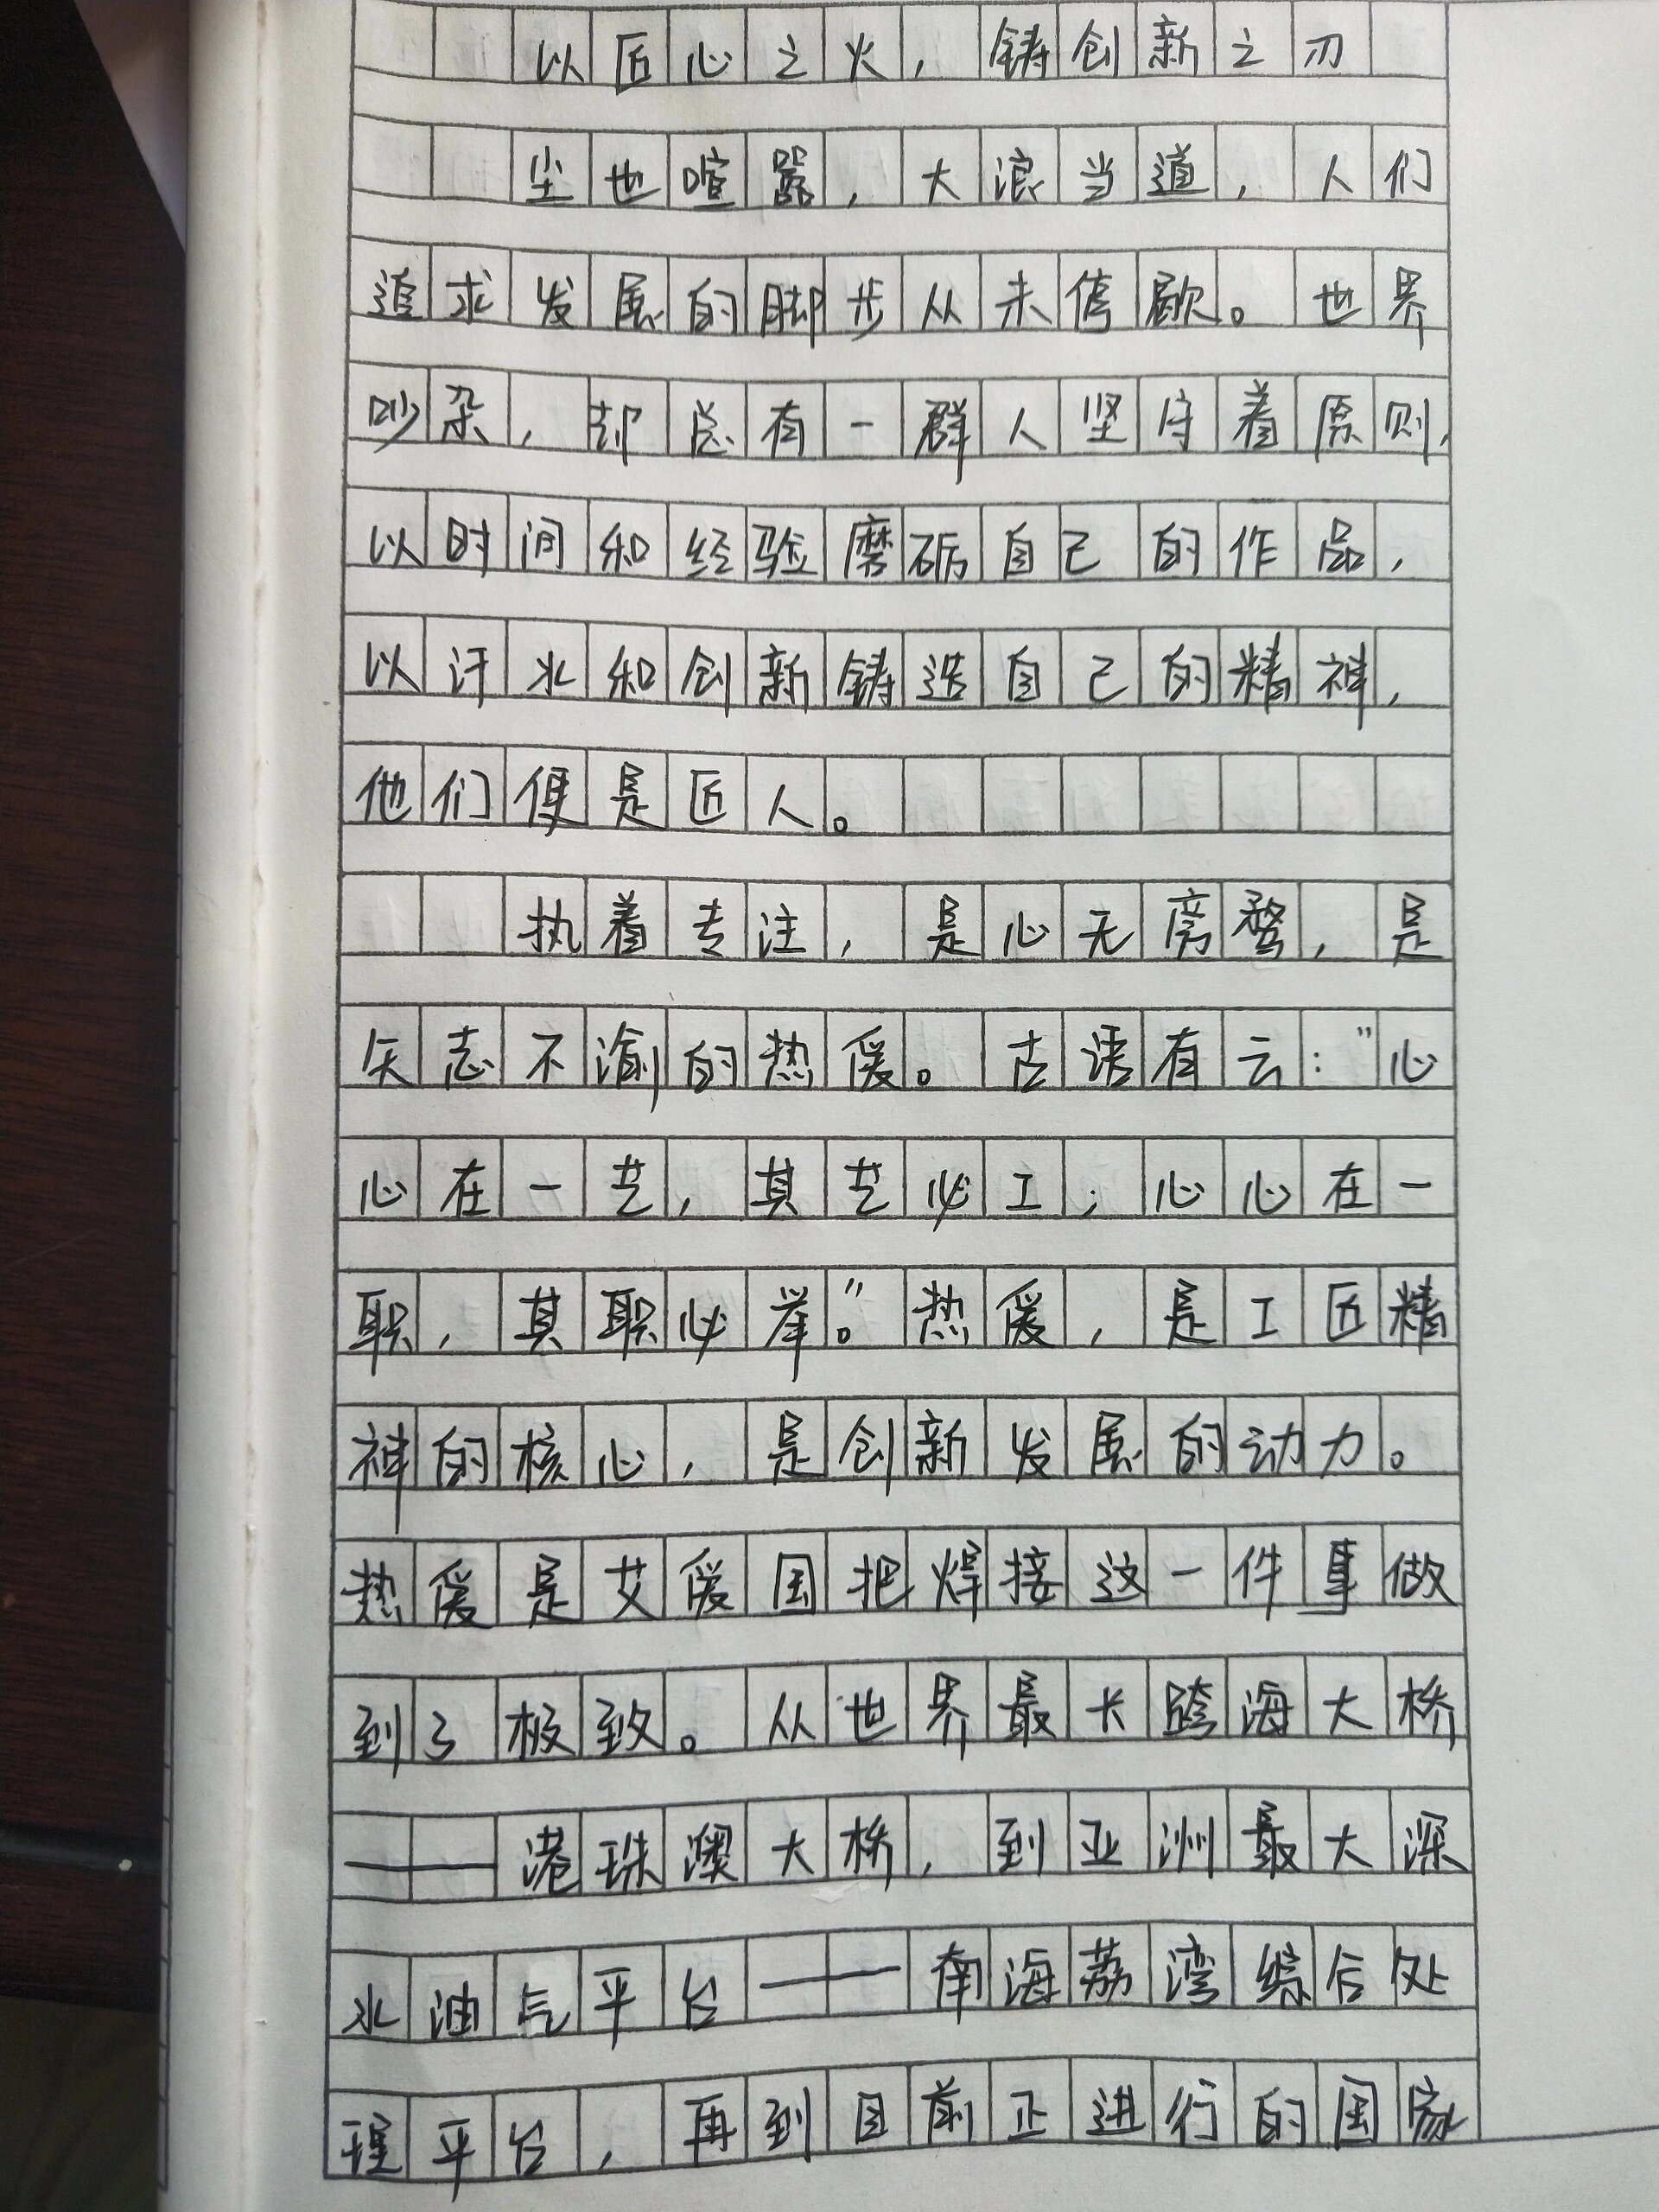 以匠心之火，铸创新之刃
尘也喧嚣，大浪当道，人们
追求发展的脚步从未停歇。世界
吵杂，却总有一群人坚守着原则，
以时间和经验磨砺自己的作品，
以汗水和创新铸造自己的精神，
他们便是匠人。
执着专注，是心无旁骛，是
矢志不渝的热爱。古语有云："心
心在一艺，其艺必工；心心在一
职，其职必举。"热爱，是工匠精
神的核心，是创新发展的动力。
热爱是艾爱国把焊接这一件事做
到了极致。从世界最长跨海大桥
——港珠澳大桥，到亚洲最大深
水油气平台——南海荔湾综合处
理平台，再到目前正进行的国家